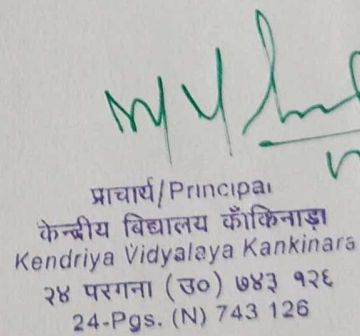 प्राचार्य/Principal
केन्द्रीय बिद्यालय काँकिनाड़ा
Kendriya Vidyalaya Kankinara
२४ परगना (उ०) ७४३ १२६
24-Pgs. (N) 743 126